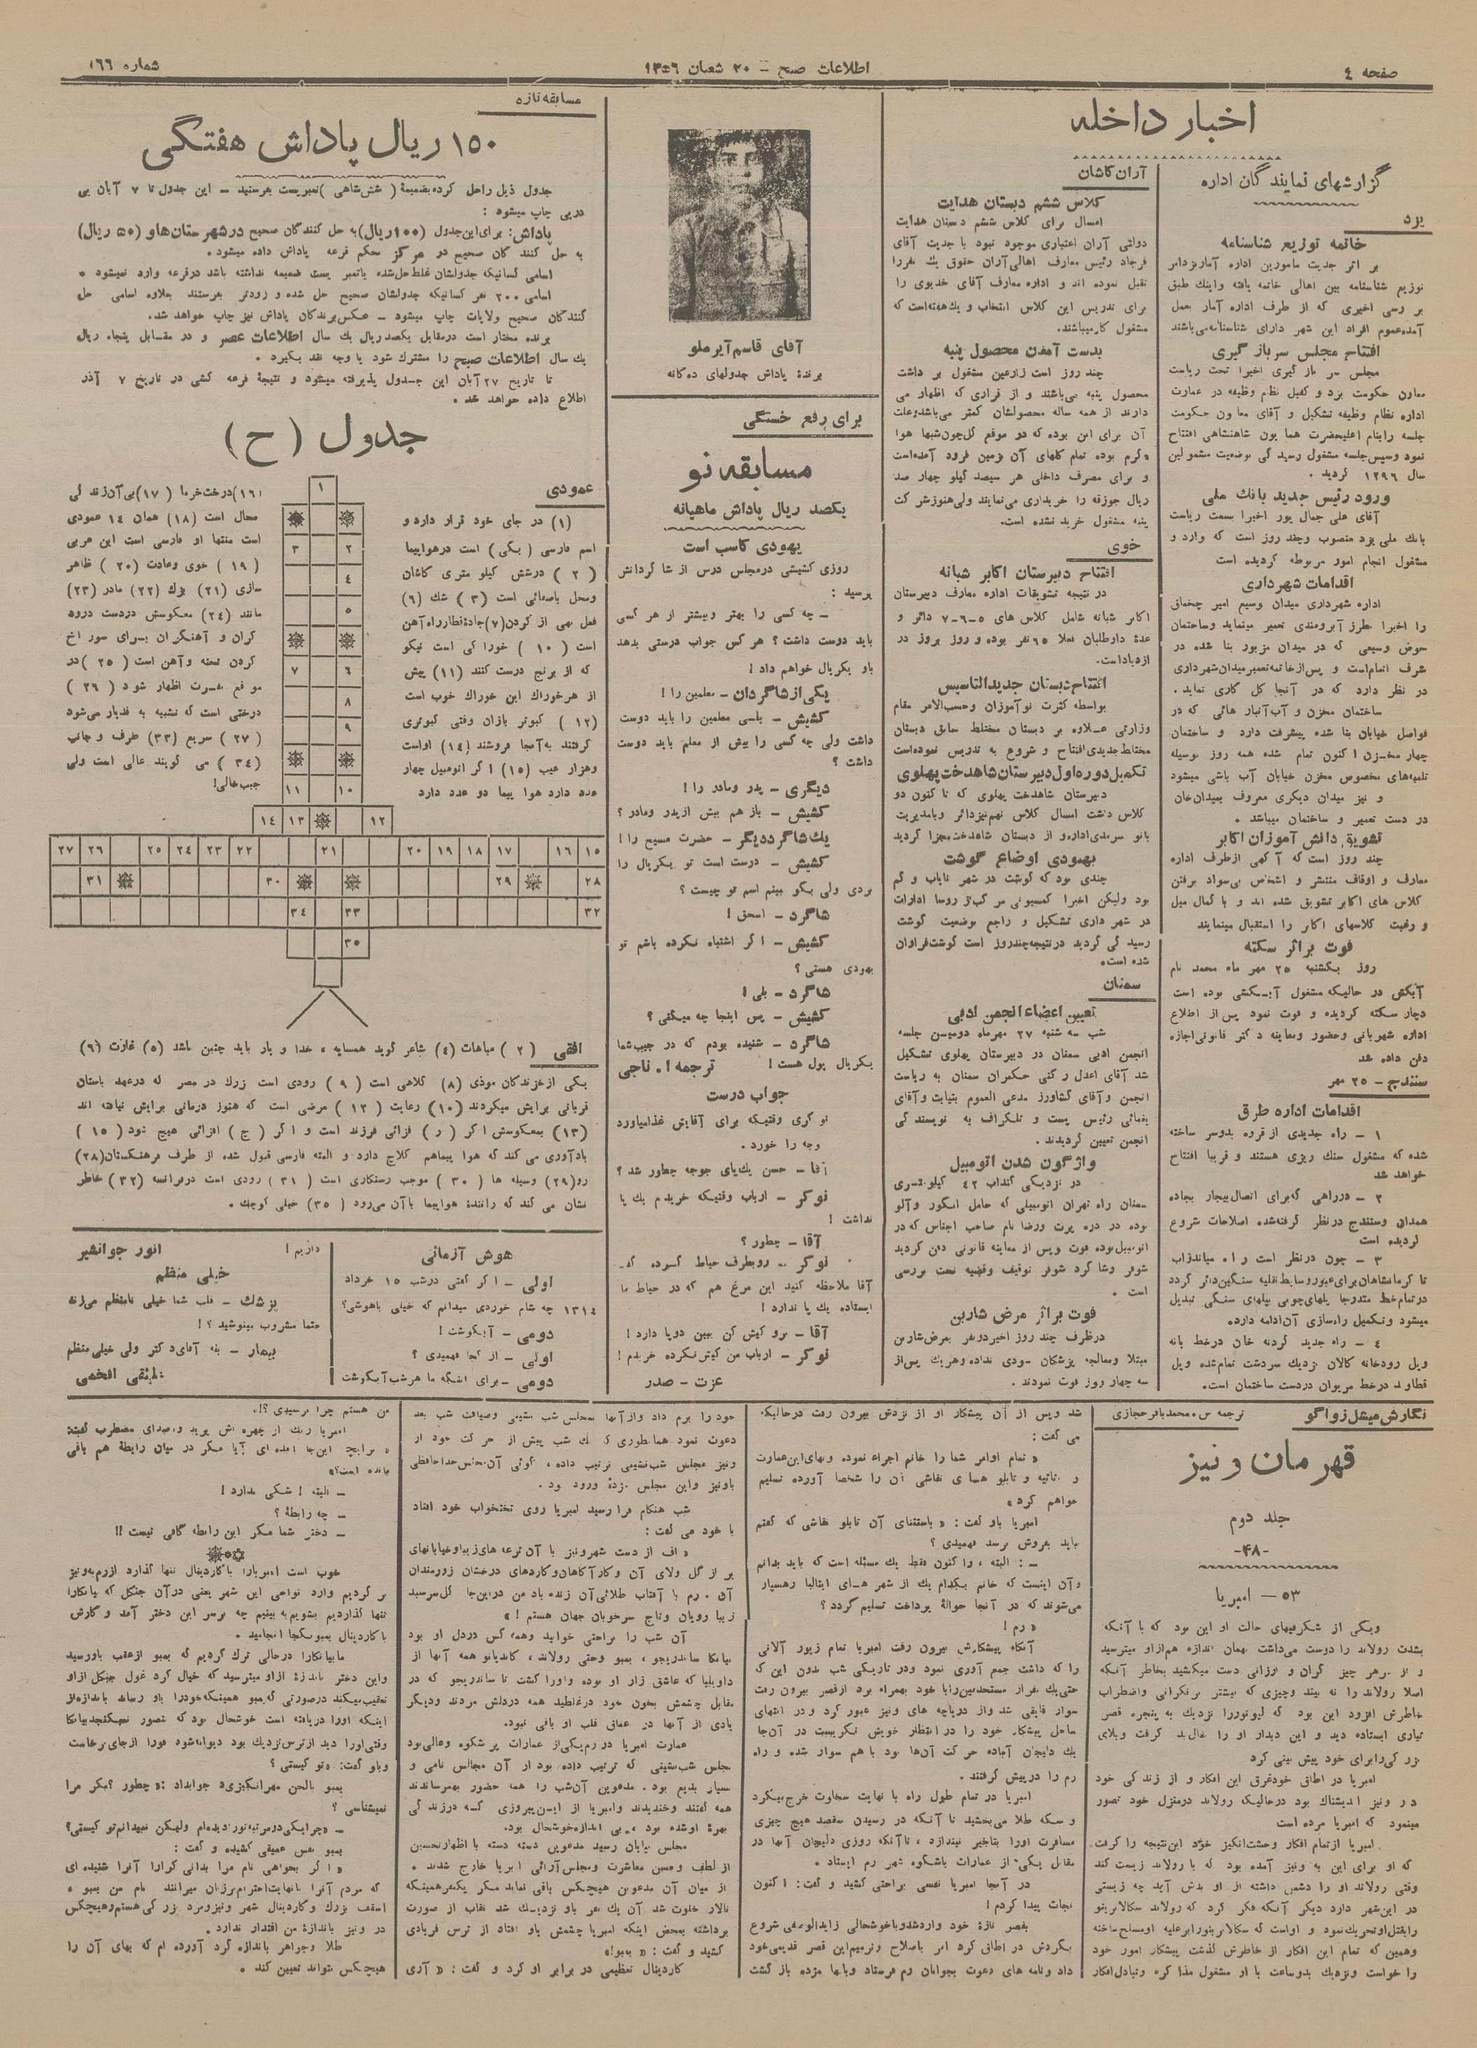 صفحه ٤
اطلاعات صبح - ٢٠ شعبان ١٣٥٦
شماره ١٦٦
اخبار داخله
گزارشهای نمایندگان اداره
یزد
خاتمه توزیع شناسنامه
بر اثر جدیت مامورین اداره آمار
توزیع شناسنامه بین اهالی خاتمه یافته واینك طبق
بر رسی اخیری که از طرف اداره آمار بعمل
آمده‌عموم افراد این شهر دارای شناسنامه‌می‌باشند
افتتاح مجلس سرباز گیری
مجلس سرباز گیری اخیرا تحت ریاست
معاون حکومت یزد و کفیل نظام وظیفه در عمارت
اداره نظام وظیفه تشکیل و آقای معاون حکومت
جلسه رابنام اعلیحضرت همایون شاهنشاهی افتتاح
نمود وسپس‌جلسه مشغول رسید گی بوضعیت مشمولین
سال ١٢٩٦ گردید .
ورود رئیس جدید بانك ملی
آقای علی جمال پور اخیرا بسمت ریاست
بانك ملی یزد منصوب وچند روز است که وارد و
مشغول انجام امور مربوطه گردیده است
اقدامات شهرداری
اداره شهرداری میدان وسیع امیر چخماق
را اخیرا بطرز آبرومندی تعمیر مینماید وساختمان
حوض وسیعی که در میدان مزبور بنا شده در
شرف اتمام‌است و پس‌از خاتمه‌تعمیرمیدان‌شهرداری
در نظر دارد که در آنجا گل کاری نماید .
ساختمان مخزن و آب‌انبار هائی که در
فواصل خیابان بنا شده پیشرفت دارد و ساختمان
چهار مخزن ا کنون تمام شده همه روز بوسیله
تلمبه‌های مخصوص مخزن خیابان آب پاشی میشود
و نیز میدان دیگری معروف بمیدان‌خان
در دست تعمیر و ساختمان میباشد .
تشویق دانش آموزان اکابر
چند روز است که آ گهی ازطرف اداره
معارف و اوقاف منتشر و اشخاص بی‌سواد برفتن
کلاس های اکابر تشویق شده اند و با کمال میل
و رغبت کلاسهای اکابر را استقبال مینمایند
فوت براثر سکته
روز یکشنبه ٢٥ مهر ماه محمد نام
آبکش در حالیکه مشغول آبکشی بوده است
دچار سکته گردیده و فوت نمود پس از اطلاع
اداره شهربانی وحضور ومعاینه دکتر قانونی‌اجازه
دفن داده شد
سنندج - ٢٥ مهر
اقدامات اداره طرق
١ - راه جدیدی از قروه بدوسر ساخته
شده که مشغول سنك ریزی هستند و قریبا افتتاح
خواهد شد
٢ - دوراهی که‌برای اتصال‌بیجار بجاده
همدان وسنندج درنظر گرفته‌شده اصلاحات شروع
گردیده است
٣ - چون درنظر است راه میاندراب
تا کرمانشاهان برای‌عبوروسایط‌نقلیه سنگین‌دائر گردد
درتمام‌خط متدرجا پلهای‌چوبی بپلهای سنگی تبدیل
میشود وتکمیل راه‌سازی آن‌ادامه دارد.
٤ - راه جدید گردنه خان درخط بانه
وپل رودخانه کالان نزدیك سردشت تمام‌شده وپل
درخط مریوان دردست ساختمان است.
آران‌کاشان
کلاس ششم دبستان هدایت
امسال برای کلاس ششم دبستان هدایت
دولتی آران اعتباری موجود نبود با جدیت آقای
فرجاد رئیس معارف اهالی‌آران حقوق یك نفررا
تقبل نموده اند و اداره معارف آقای خدیوی را
برای تدریس این کلاس انتخاب و یك‌هفته‌است که
مشغول کارمیباشند.
بدست آمدن محصول پنبه
چند روز است زارعین مشغول بر داشت
محصول پنبه می‌باشند و از قراری که اظهار می
دارند از همه ساله محصولشان کمتر می‌باشدوعلت
آن برای این بوده که در موقع گل‌چون‌شبها هوا
گرم بوده تمام گلهای آن بزمین فرود آمده‌است
و برای مصرف داخلی هر سیصد کیلو چهار صد
ریال جوزقه را خریداری می‌نمایند ولی‌هنوزشر کت
پنبه مشغول خرید نشده است.
خوی
افتتاح دبیرستان اکابر شبانه
در نتیجه تشویقات اداره معارف دبیرستان
اکابر شبانه شامل کلاس های ٥-٦-٧ دائر و
عدهٔ داوطلبان فعلا ٦٥نفر بوده و روز بروز در
ازدیاداست.
افتتاح‌دبستان جدیدالتاسیس
بواسطه کثرت نوآموزان وحسب‌الامر مقام
وزارتی عــلاوه بر دبستان مختلط سابق دبستان
مختلط جدیدی افتتاح و شروع به تدریس نموده‌است
تکمیل‌دوره اول‌دبیرستان‌شاهدخت‌پهلوی
دبیرستان شاهدخت پهلوی که تا کنون دو
کلاس داشت امسال کلاس نهم‌نیزدائر وبامدیریت
بانو سرمدی‌اداره‌و از دبستان شاهدخت مجزا گردید
بهبودی اوضاع گوشت
چندی بود که گوشت در شهر نایاب و کم
بود ولیکن اخیرا کمسیونی مر کب‌از روسا ادارات
در شهر داری تشکیل و راجع بوضعیت گوشت
رسید گی گردید درنتیجه‌چندروز است گوشت‌فراوان
شده است.
سمنان
تعیین اعضاءانجمن ادبی
شب سه شنبه ٢٧ مهرماه دومین جلسه
انجمن ادبی سمنان در دبیرستان پهلوی تشکیل
شد آقای اعدل رکنی حکمران سمنان به ریاست
انجمن وآقای کشاورز مدعی العموم بنیابت وآقای
یغمائی رئیس پست و تلگراف به نویسند گی
انجمن تعیین گردیدند.
واژگون شدن اتومبیل
در نزدیکی گنداب ٤٢ کیلومتـری
سمنان راه تهران اتومبیلی که حامل انگور وآلو
بوده در دره پرت ورضا نام صاحب اجناس که در
اتومبیل‌بوده فوت وپس از معاینه قانونی دفن گردید
شوفر وشا گرد شوفر توقیف وقضیه تحت بررسی
است .
فوت براثر مرض شاربن
درظرف چند روز اخیردونفر بمرض‌شاربن
مبتلا ومعالجه پزشکان سودی نداده وهریك پس‌از
سه چهار روز فوت نمودند .
آقای قاسم آیرملو
برندهٔ پاداش جدولهای ده‌گانه
برای رفع خستگی
مسابقه نو
یکصد ریال پاداش ماهیانه
یهودی کاسب است
روزی کشیشی درمجلس درس از شا گردانش
پرسید :
- چه کسی را بهتر وبیشتر از هر کسی
باید دوست داشت؟ هر کس جواب درستی بدهد
باو یکریال خواهم داد !
یکی‌ازشاگردان - معلمین را !
کشیش - بلـی معلمین را باید دوست
داشت ولی چه کسی را بیش از معلم باید دوست
داشت ؟
دیگری - پدر ومادر را !
کشیش - باز هم بیش ازپدر ومادر ؟
یك‌شاگرد دیگر - حضرت مسیح را !
کشیش - درست است تو یکریال را
بردی ولی بگو ببینم اسم تو چیست ؟
شاگرد - اسحق !
کشیش - ا گر اشتباه نکرده باشم تو
یهودی هستی ؟
شاگرد - بلی !
کشیش - پس اینجا چه میکنی ؟
شاگرد - شنیده بودم که در جیب‌شما
یکریال پول هست ! ترجمه ا. ناجی
جواب درست
نو کری وقتیکه برای آقایش غذامیاورد
وجه را خورد .
آقا - حسن یك‌پای جوجه چطور شد ؟
نوکر - ارباب وقتیکه خریدم یك پا
نداشت !
آقا - چطور ؟
آقا ملاحظه کنید این مرغ هم که در حیاط ما
ایستاده یك پا ندارد !
آقا - برو کیش کن ببین دوپا دارد !
نوکر - ارباب من کیش‌نکرده خریدم !
عزت - صدر
مسابقه تازه
١٥٠ ریال پاداش هفتگی
جدول ذیل راحل کرده‌بضمیمهٔ ( شش‌شاهی )تمبرپست بفرستید - این جدول تا ٧ آبان پی
درپی چاپ میشود :
پاداش: برای‌این‌جدول (١٠٠ریال)به حل کنندگان صحیح درشهرستان‌هاو (٥٠ ریال)
به حل کنند گان صحیح در مرکز بحکم قرعه پاداش داده میشود .
اسامی کسانیکه جدولشان غلط حل‌شده یاتمبر پست ضمیمه نداشته باشد درقرعه وارد نمیشود *
اسامی ٢٠٠ نفر کسانیکه جدولشان صحیح حل شده و زودتر بفرستند بعلاوه اسامی حل
کنندگان صحیح ولایات چاپ میشود - عکس‌برندگان پاداش نیز چاپ خواهد شد.
برنده مختار است درمقابل یکصدریال یك سال اطلاعات عصر و در مقــابل پنجاه ریال
یك سال اطلاعات صبح را مشترك شود یا وجه نقد بگیرد .
تا تاریخ ٢٧ آبان این جــدول پذیرفته میشود و نتیجهٔ قرعه کشی در تاریخ ٧ آذر
اطلاع داده خواهد شد .
جدول (ح)
عمودی
(١) در جای خود قرار دارد و
اسم فارسی ( بکی ) است درهواپیما
( ٢ ) درشش کیلو متری کاشان
ومحل باصفائی است (٣) شك (٦)
فعل نهی از کردن(٧)جادهٔ‌قطارراه‌آهن
است ( ١٠ ) خورا کی است نیکو
که از برنج درست کنند (١١) پیش
از هرخوراك این خوراك خوب است
(١٢) کبوتر بازان وقتی کبوتری
گرفتند به‌آنجا فروشند (١٤) اواست
وهزار عیب (١٥) ا گر اتومبیل چهار
عدد دارد هوا پیما دو عدد دارد
(١٦)درخت‌خرما (١٧)بی‌آن‌زند گی
محال است (١٨) همان ١٤ عمودی
است منتها او فارسی است این عربی
(١٩) خوی وعادت (٢٠) ظاهر
سازی (٢١) بزك (٢٢) مادر (٢٣)
مانند (٢٤) معکوسش دردست درود
گران و آهنگران بــرای سوراخ
کردن تخته وآهن است (٢٥) در
موقع نفرت اظهار شود (٢٦)
درختی است که تشبیه به قدیار می‌شود
(٢٧) سریع (٣٣) طرف و جانب
(٣٤) می گویند عالی است ولی
جیب‌خالی!
١
٢ ٣
٤
٥
٦ ٧
٨
٩
١٠ ١١
١٢ ١٣ ١٤
١٥ ١٦ ١٧ ١٨ ١٩ ٢٠ ٢١ ٢٢ ٢٣ ٢٤ ٢٥ ٢٦ ٢٧
٢٨ ٢٩ ٣٠ ٣١
٣٢ ٣٣ ٣٤
٣٥
افقی (٢) مباهات (٤) شاعر گوید همسایه * خدا و یار باید چنین باشد (٥) غارت (٦)
یکی ازخزندگان موذی (٨) کلاهی است (٩) رودی است بزرك در مصر که درعهد باستان
قربانی برایش میکردند (١٠) رعایت (١٢) مرضی است که هنوز درمانی برایش نیافته اند
(١٣) بمعکوسش ا گر ( ر ) فزائی فرزند است و ا گر ( ج ) افزائی هیچ نبود (١٥)
یادآوری می کند که هوا پیماهم کلاچ دارد و البته فارسی قبول شده از طرف فرهنگستان(٢٨)
رو(٢٩) وسیله ها (٣٠) موجب رستگاری است (٣١) رودی است درفرانسه (٣٢) خاطر
نشان می کند که رانندهٔ هواپیما باآن می‌رود (٣٥) خیلی کوچك .
هوش آزمائی
اولی - ا گر گفتی درشب ١٥ خرداد
١٣١٤ چه شام خوردی میدانم که خیلی باهوشی؟
دومی - آبگوشت !
اولی - از کجا فهمیدی ؟
دومی - برای اینکه ما هرشب آبگوشت
داریم ! انور جوانشیر
خیلی منظم
پزشك - قلب شما خیلی نامنظم میزند
حتما مشروب مینوشید ؟ !
بیمار - بله آقای دکتر ولی خیلی‌منظم
افخمی
نگارش میشل زواگو
ترجمه س. محمدباقرحجازی
قهرمان ونیز
جلد دوم
-٤٨-
٥٣ - امپریا
ویکی از شگرفیهای حالت او این بود که با آنکه
بشدت رولاند را دوست می‌داشت بهمان اندازه هم‌ازاو میترسید
و از هر چیز گران و ارزانی دست میکشید بخاطر آنکه
اصلا رولاند را نه بیند وچیزی که بیشتر برنگرانی واضطراب
خاطرش افزود این بود که لیونوررا نزدیك به پنجره قصر
تیاری ایستاده دید و این دیدار او را بفال‌بد گرفت وبلای
بزر گی‌رابرای خود پیش بینی کرد
امپریا در اطاق خودغرق این افکار و از زند گی خود
در ونیز اندیشناك بود درحالیکه رولاند درمنزل خود تصور
مینمود که امپریا مرده است
امپریا ازتمام افکار وحشت‌انگیز خود این‌نتیجه را گرفت
که او برای این به ونیز آمده بود که با رولاند زیست کند
وقتی رولاند او را دشمن داشته از او بدش آید چه زیستی
در این‌شهر دارد دیگر آنکه فکر کرد که رولاند سکالابرینو
رابقتل‌اوتحریك‌نمود و اوست که سکالابرینورابرعلیه اومسلح‌ساخته
وهمین که تمام این افکار از خاطرش گذشت پیشکار امور خود
را خواست ونزدیك بدوساعت با او مشغول مذا کره وتبادل‌افکار
شد وپس از آن پیشکار او از نزدش بیرون رفت درحالیکه
می گفت :
« تمام اوامر شما را خانم اجراء نموده وبهای‌این‌عمارت
و اثاثیه و تابلو هــای نقاشی آن را شخصا آورده تسلیم
خواهم کرد »
امپریا باو گفت : « باستثنای آن تابلو نقاشی که گفتم
نباید بفروش برسد فهمیدی ؟
- : البته ، وا کنون فقط یك مسئله است که باید بدانم
وآن اینست که خانم بکدام یك از شهر هــای ایتالیا رهسپار
می‌شوند که در آنجا حوالهٔ پرداخت تسلیم گردد ؟
« رم !
آنگاه پیشکارش بیرون رفت امپریا تمام زیور آلاتی
را که داشت جمع آوری نمود ودر تاریکی شب بدون این که
حتی‌یك‌نفراز مستخدمین‌رابا خود بهمراه برد ازقصر بیرون رفت
سوار قایقی شد واز دریاچه های ونیز عبور کرد ودر انتهای
ساحل پیشکار خود را در انتظار خویش نگریست در آن‌جا
یك دلیجان آماده حرکت آن‌ها بود با هم سوار شده و راه
رم را درپیش گرفتند .
امپریا در تمام طول راه با نهایت سخاوت خرج‌میکرد
و سکه طلا می‌بخشید تا آنکه در رسیدن بمقصد هیچ چیزی
مسافرت اورا بتاخیر نیندازد ، تاآنکه روزی دلیجان آنها در
مقابل یکی از عمارات باشکوه شهر رم ایستاد .
در آنجا امپریا نفسی براحتی کشید و گفت : ا کنون
نجات پیدا کردم !
بقصر تازهٔ خود واردشدوباخوشحالی زایدالوصفی شروع
بگردش در اطاق کرد امر باصلاح وترمیم‌این قصر قدیمی‌خود
داد ونامه های دعوت بجوانان رم فرستاد وبآنها مژده باز گشت
خود را برم داد وازآنها بمجلس شب نشینی وضیافت شب بعد
دعوت نمود همانطوری که یك شب پیش از حر کت خود از
ونیز مجلس شب‌نشینی ترتیب داده ، گوئی آن‌مجلس‌خداحافظی
باونیز واین مجلس مژدهٔ ورود بود .
شب هنگام فرا رسید امپریا روی تختخواب خود افتاد
با خود می گفت :
« اف از دست شهرونیز با آن ترعه های‌زیباوخیابانهای
پر از گل ولای آن وکارآگاهان‌وکاردهای درخشان زورمندان
آن . رم با آفتاب طلائی‌آن زنده باد من دراین‌جا گل‌سرسبد
زیبا رویان وتاج سرخوبان جهان هستم !»
آن شب را براحتی خوابید وهمه کس دردل او بود
بیانکا ساندریجو ، بمبو وحتی رولاند ، کاندیانو همه آنها از
داویلا که عاشق زار او بوده واورا کشت تا ساندریجو که در
مقابل چشمش بخون خود درغلطید همه دردلش مردند ودیگر
یادی از آنها در عماق قلب او باقی نبود.
عمارت امپریا در رم‌یکی‌از عمارات پر شکوه وعالی‌بود
مجلس شب‌نشینی که ترتیب داده بود از آن مجالس نامی و
بسیار بدیع بود . مدعوین آن‌شب را همه حضور بهم‌رساندند
همه گفتند وخندیدند وامپریا از ایــن‌پیروزی کــه درزند گی
بهرهٔ اوشده بود ، بی اندازه‌خوشحال بود.
مجلس بپایان رسید مدعوین دسته دسته با اظهارتحسین
از لطف وحسن معاشرت ومجلس‌آرائی امپریا خارج شدند .
از میان آن مدعوین هیچکس باقی نماند مگر یکنفرهمینکه
تالار خلوت شد آن یك نفر باو نزدیك شد نقاب از صورت
برداشته بمحض اینکه امپریا چشمش باو افتاد از ترس فریادی
کشید و گفت : « بمبو!»
کاردینال تعظیمی در برابر او کرد و گفت : « آری
من هستم چرا ترسیدی ؟!.
امپریا رنك از چهره اش پرید وباصدای مضطرب گفت:
« برایچه این‌جا آمده ای آیا مگر در میان رابطهٔ هم باقی
مانده است؟»
- البته ! شکی ندارد !
- چه رابطهٔ ؟
- دختر شما مگر این رابطه کافی نیست !!
خوب است امپریارا باکاردینال تنها گذارد ازرم‌به‌ونیز
بر گردیم وارد نواحی این شهر یعنی درآن جنگل که بیانکارا
تنها گذاردیم بشویم‌به بینیم چه برسر این دختر آمد و کارش
با کاردینال بمبوبکجا انجامید .
مابیانکارا درحالی ترك کردیم که بمبو ازعقب باورسید
واین دختر باندازهٔ ازاو میترسید که خیال کرد غول جنگل‌ازاو
تعقیب‌میکند درصورتی که‌بمبو همینکه‌خودرا باو رساند باندازه‌از
اینکه اورا دریافته است خوشحال بود که تصور نمیکنم‌بیانکا
وقتی‌اورا دید ازترس‌نزدیك بود دیوانه‌شود فورا ازجای برخاست
وباو گفت: «تو کیستی ؟
بمبو بالحن مهرانگیزی جوابداد :« چطور ؟مگر مرا
نمیشناسی ؟
- «چرایکی‌دومرتبه‌تورادیده‌ام ولیکن نمیدانم‌تو کیستی؟
بمبو نفس عمیقی کشیده و گفت :
« ا گر بخواهی نام مرا بدانی کرارا آنرا شنیده ای
که مردم آنرا بانهایت احترام‌برزبان میرانند نام من بمبو *
اسقف بزرك وکاردینال شهر ونیزومرد بزر گی هستم‌وهیچکس
در ونیز باندازهٔ من اقتدار ندارد .
طلا وجواهر باندازه گرد آورده ام که بهای آن را
هیچکس نتواند تعیین کند .